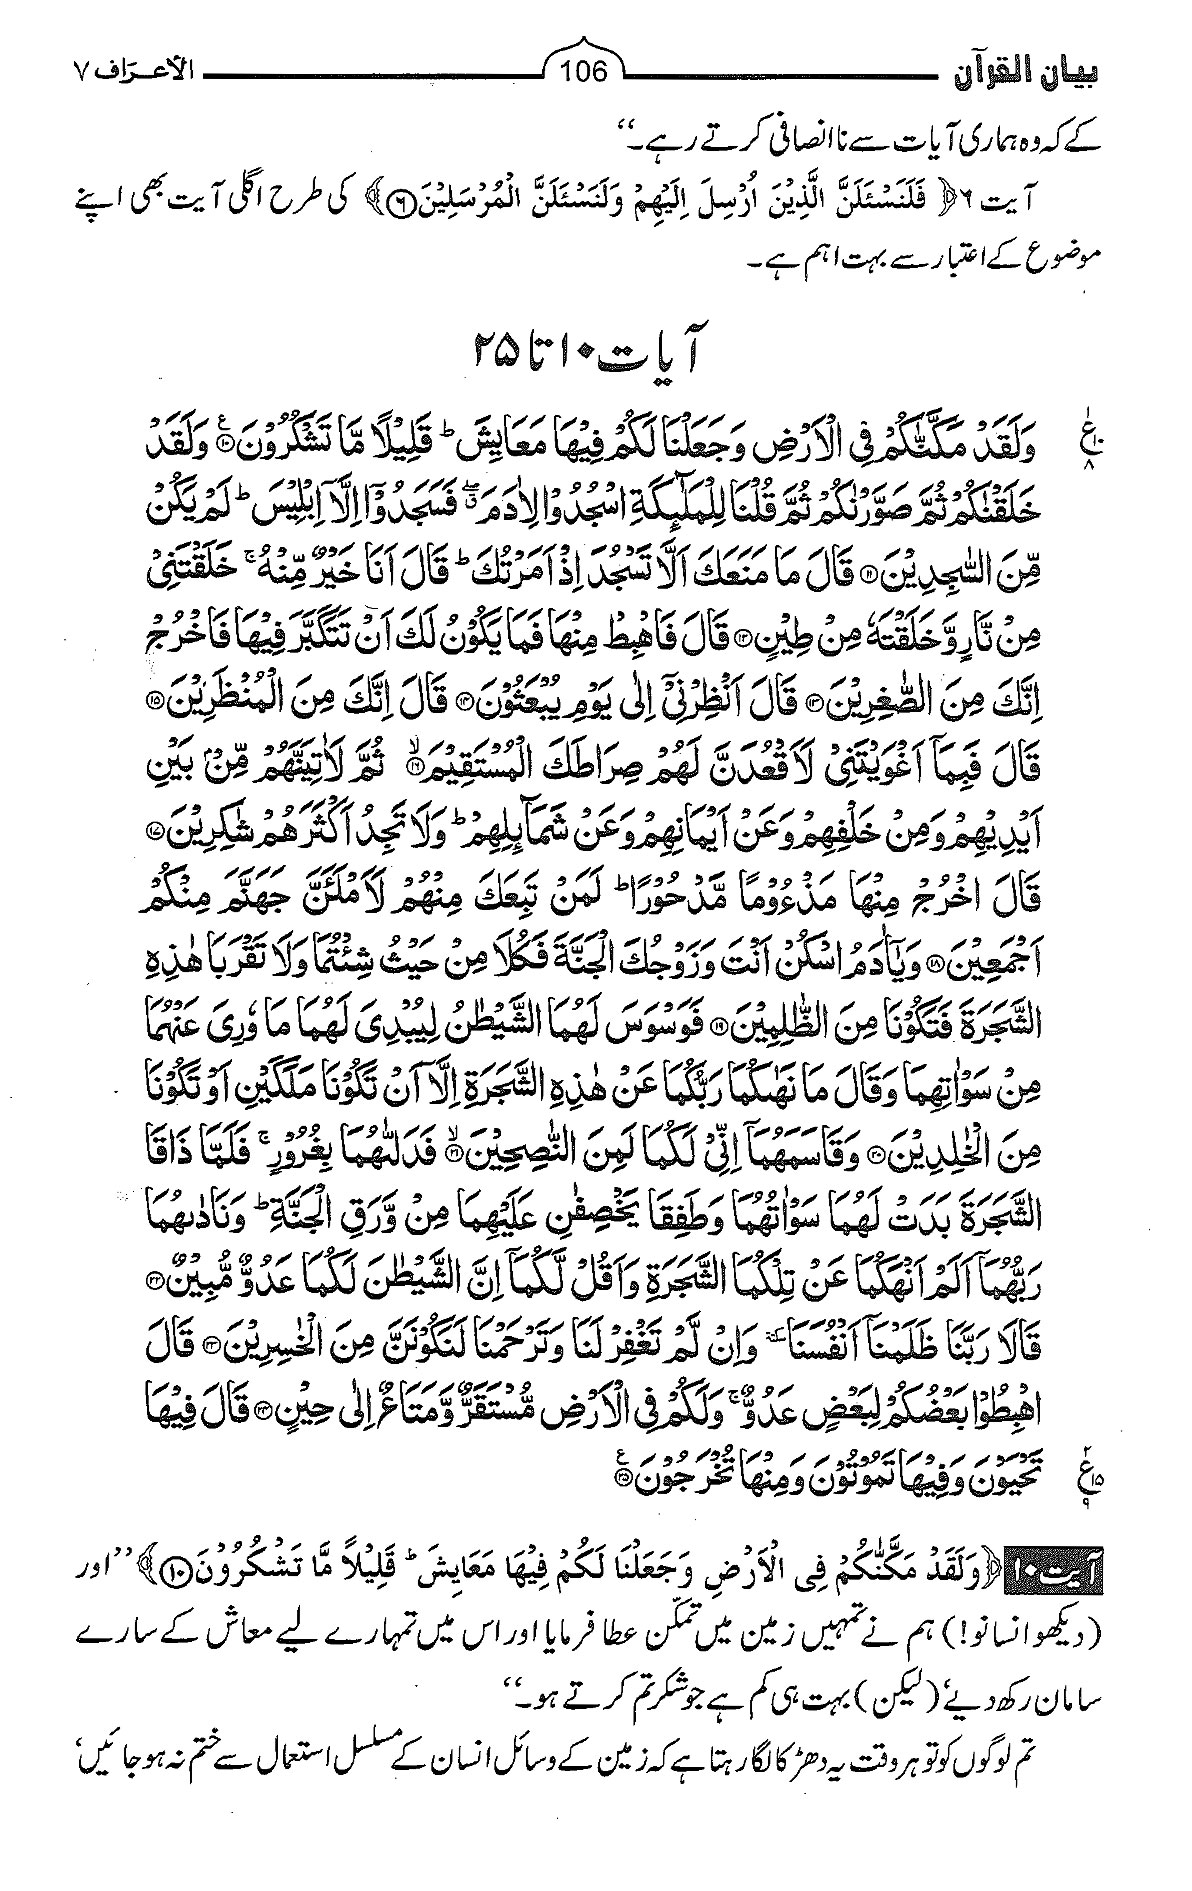 بیان القرآن 106 الاعراف ۷
کے کہ وہ ہماری آیات سے ناانصافی کرتے رہے۔‘‘
آیت ۶ ﴿فَلَنَسْئَلَنَّ الَّذِیْنَ اُرْسِلَ اِلَیْهِمْ وَلَنَسْئَلَنَّ الْمُرْسَلِیْنَ ۶﴾ کی طرح اگلی آیت بھی اپنے
موضوع کے اعتبار سے بہت اہم ہے۔
آیات ۱۰ تا ۲۵
وَلَقَدْ مَكَّنّٰكُمْ فِی الْاَرْضِ وَجَعَلْنَا لَكُمْ فِیْهَا مَعَایِشَ ؕ قَلِیْلًا مَّا تَشْكُرُوْنَ ۱۰ وَلَقَدْ
خَلَقْنٰكُمْ ثُمَّ صَوَّرْنٰكُمْ ثُمَّ قُلْنَا لِلْمَلٰٓىِٕكَةِ اسْجُدُوْا لِاٰدَمَ ۖۗ فَسَجَدُوْۤا اِلَّاۤ اِبْلِیْسَ ؕ لَمْ یَكُنْ
مِّنَ السّٰجِدِیْنَ ۱۱ قَالَ مَا مَنَعَكَ اَلَّا تَسْجُدَ اِذْ اَمَرْتُكَ ؕ قَالَ اَنَا خَیْرٌ مِّنْهُ ۚ خَلَقْتَنِیْ
مِنْ نَّارٍ وَّخَلَقْتَهٗ مِنْ طِیْنٍ ۱۲ قَالَ فَاهْبِطْ مِنْهَا فَمَا یَكُوْنُ لَكَ اَنْ تَتَكَبَّرَ فِیْهَا فَاخْرُجْ
اِنَّكَ مِنَ الصّٰغِرِیْنَ ۱۳ قَالَ اَنْظِرْنِیْۤ اِلٰی یَوْمِ یُبْعَثُوْنَ ۱۴ قَالَ اِنَّكَ مِنَ الْمُنْظَرِیْنَ ۱۵
قَالَ فَبِمَاۤ اَغْوَیْتَنِیْ لَاَقْعُدَنَّ لَهُمْ صِرَاطَكَ الْمُسْتَقِیْمَ ۙ۱۶ ثُمَّ لَاٰتِیَنَّهُمْ مِّنْۢ بَیْنِ
اَیْدِیْهِمْ وَمِنْ خَلْفِهِمْ وَعَنْ اَیْمَانِهِمْ وَعَنْ شَمَآىِٕلِهِمْ ؕ وَلَا تَجِدُ اَكْثَرَهُمْ شٰكِرِیْنَ ۱۷
قَالَ اخْرُجْ مِنْهَا مَذْءُوْمًا مَّدْحُوْرًا ؕ لَمَنْ تَبِعَكَ مِنْهُمْ لَاَمْلَـَٔنَّ جَهَنَّمَ مِنْكُمْ
اَجْمَعِیْنَ ۱۸ وَیٰۤاٰدَمُ اسْكُنْ اَنْتَ وَزَوْجُكَ الْجَنَّةَ فَكُلَا مِنْ حَیْثُ شِئْتُمَا وَلَا تَقْرَبَا هٰذِهِ
الشَّجَرَةَ فَتَكُوْنَا مِنَ الظّٰلِمِیْنَ ۱۹ فَوَسْوَسَ لَهُمَا الشَّیْطٰنُ لِیُبْدِیَ لَهُمَا مَا وٗرِیَ عَنْهُمَا
مِنْ سَوْاٰتِهِمَا وَقَالَ مَا نَهٰىكُمَا رَبُّكُمَا عَنْ هٰذِهِ الشَّجَرَةِ اِلَّاۤ اَنْ تَكُوْنَا مَلَكَیْنِ اَوْ تَكُوْنَا
مِنَ الْخٰلِدِیْنَ ۲۰ وَقَاسَمَهُمَاۤ اِنِّیْ لَكُمَا لَمِنَ النّٰصِحِیْنَ ۙ۲۱ فَدَلّٰىهُمَا بِغُرُوْرٍ ۚ فَلَمَّا ذَاقَا
الشَّجَرَةَ بَدَتْ لَهُمَا سَوْاٰتُهُمَا وَطَفِقَا یَخْصِفٰنِ عَلَیْهِمَا مِنْ وَّرَقِ الْجَنَّةِ ؕ وَنَادٰىهُمَا
رَبُّهُمَاۤ اَلَمْ اَنْهَكُمَا عَنْ تِلْكُمَا الشَّجَرَةِ وَاَقُلْ لَّكُمَاۤ اِنَّ الشَّیْطٰنَ لَكُمَا عَدُوٌّ مُّبِیْنٌ ۲۲
قَالَا رَبَّنَا ظَلَمْنَاۤ اَنْفُسَنَا ٚ وَاِنْ لَّمْ تَغْفِرْ لَنَا وَتَرْحَمْنَا لَنَكُوْنَنَّ مِنَ الْخٰسِرِیْنَ ۲۳ قَالَ
اهْبِطُوْا بَعْضُكُمْ لِبَعْضٍ عَدُوٌّ ۚ وَلَكُمْ فِی الْاَرْضِ مُسْتَقَرٌّ وَّمَتَاعٌ اِلٰی حِیْنٍ ۲۴ قَالَ فِیْهَا
تَحْیَوْنَ وَفِیْهَا تَمُوْتُوْنَ وَمِنْهَا تُخْرَجُوْنَ ۲۵
آیت ۱۰ ﴿وَلَقَدْ مَكَّنّٰكُمْ فِی الْاَرْضِ وَجَعَلْنَا لَكُمْ فِیْهَا مَعَایِشَ ؕ قَلِیْلًا مَّا تَشْكُرُوْنَ ۱۰﴾ ’’اور
(دیکھو انسانو!) ہم نے تمہیں زمین میں تمکّن عطا فرمایا اور اس میں تمہارے لیے معاش کے سارے
سامان رکھ دیے‘ (لیکن) بہت ہی کم ہے جو شکر تم کرتے ہو۔‘‘
تم لوگوں کو تو ہر وقت یہ دھڑکا لگا رہتا ہے کہ زمین کے وسائل انسان کے مسلسل استعمال سے ختم نہ ہو جائیں‘